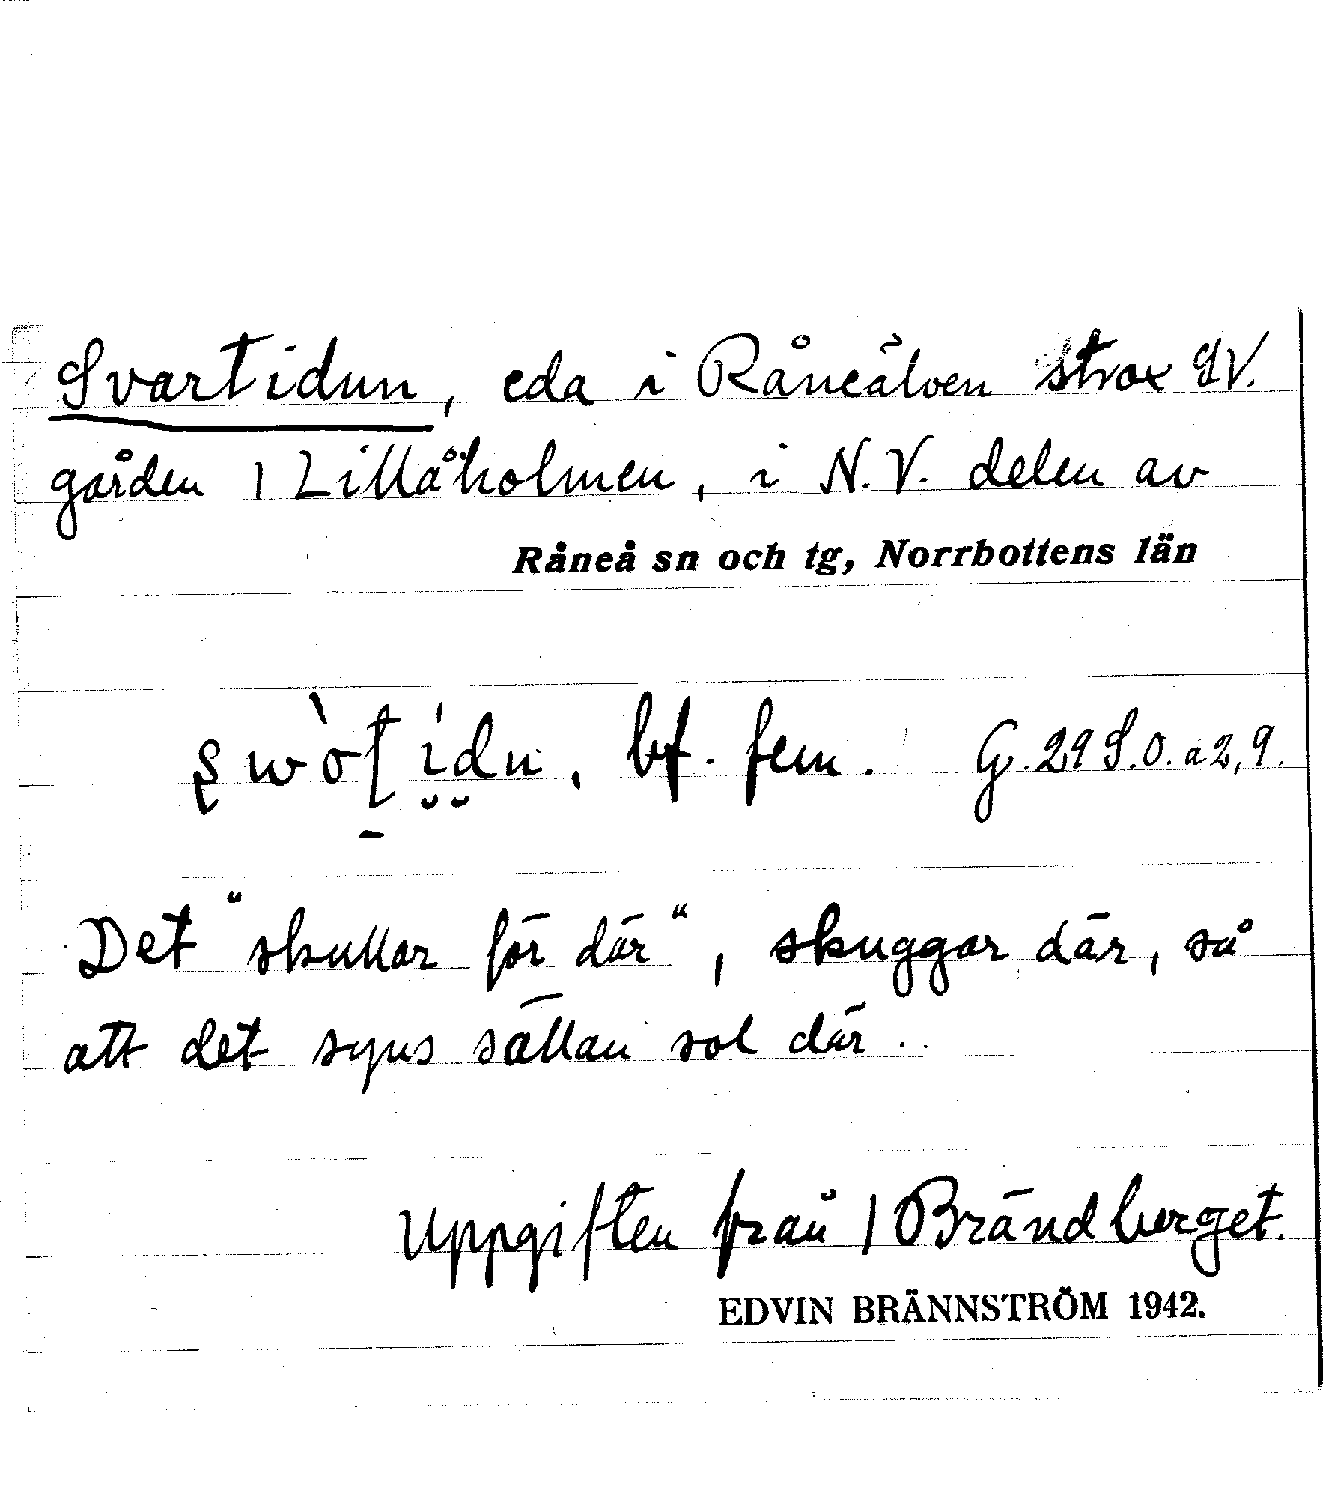 Svartidun, eda i Råneälven strax SV.
gården 1 Lillåholmen, i N.V. delen av
Råneå sn och tg, Norrbottens län
bf. fem. G. 29 S.O. a 2, 9.
Det "skullar för där", skuggar där, så
att det syns sällan sol där.
Uppgiften från 1 Brändberget.
EDVIN BRÄNNSTRÖM 1942.